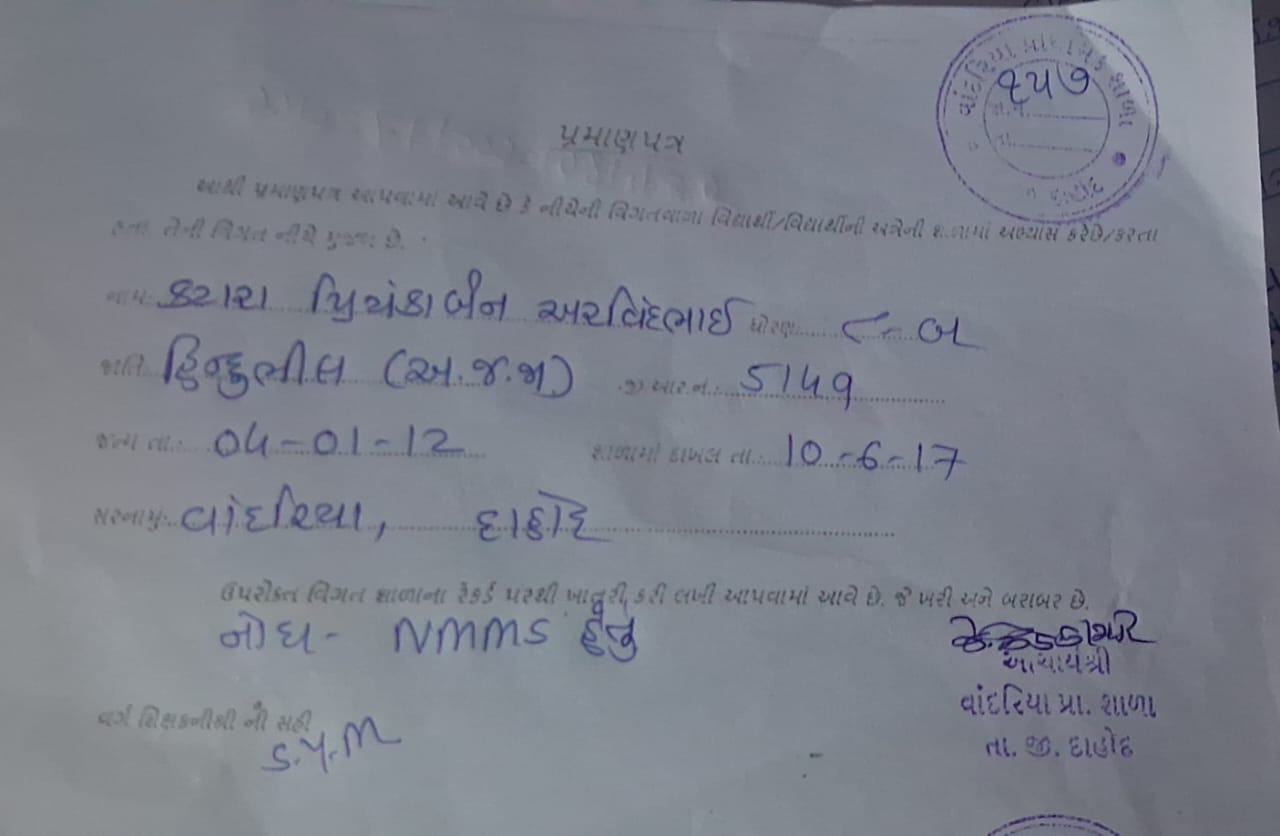 વાંદરિયા પ્રાથમિક શાળા
૧૫૭
દાહોદ
પ્રમાણપત્ર
આથી પ્રમાણપત્ર આપવામાં આવે છે કે નીચેની વિગતવાળા વિદ્યાર્થી/વિદ્યાર્થીની અત્રેની શાળામાં અભ્યાસ કરેછે/કરતા
હતા. તેની વિગત નીચે મુજબ છે.
નામ: કટારા પ્રિયંકાબેન અરવિંદભાઈ ધોરણ: ૮-બ
જાતિ: હિન્દુભીલ (અ.જ.જા) જી આર નં.: 5149
જન્મ તા.: 04-01-12 શાળામાં દાખલ તા.: 10-6-17
સરનામુ: વાંદરિયા, દાહોદ
ઉપરોક્ત વિગત શાળાના રેકર્ડ પરથી ખાતરી કરી લખી આપવામાં આવે છે. જે ખરી અને બરાબર છે.
નોધ- NMMS હેતુ
આચાર્યશ્રી
વાંદરિયા પ્રા. શાળા
તા. જી. દાહોદ
વર્ગ શિક્ષકનીશ્રી ની સહી
S.Y.M